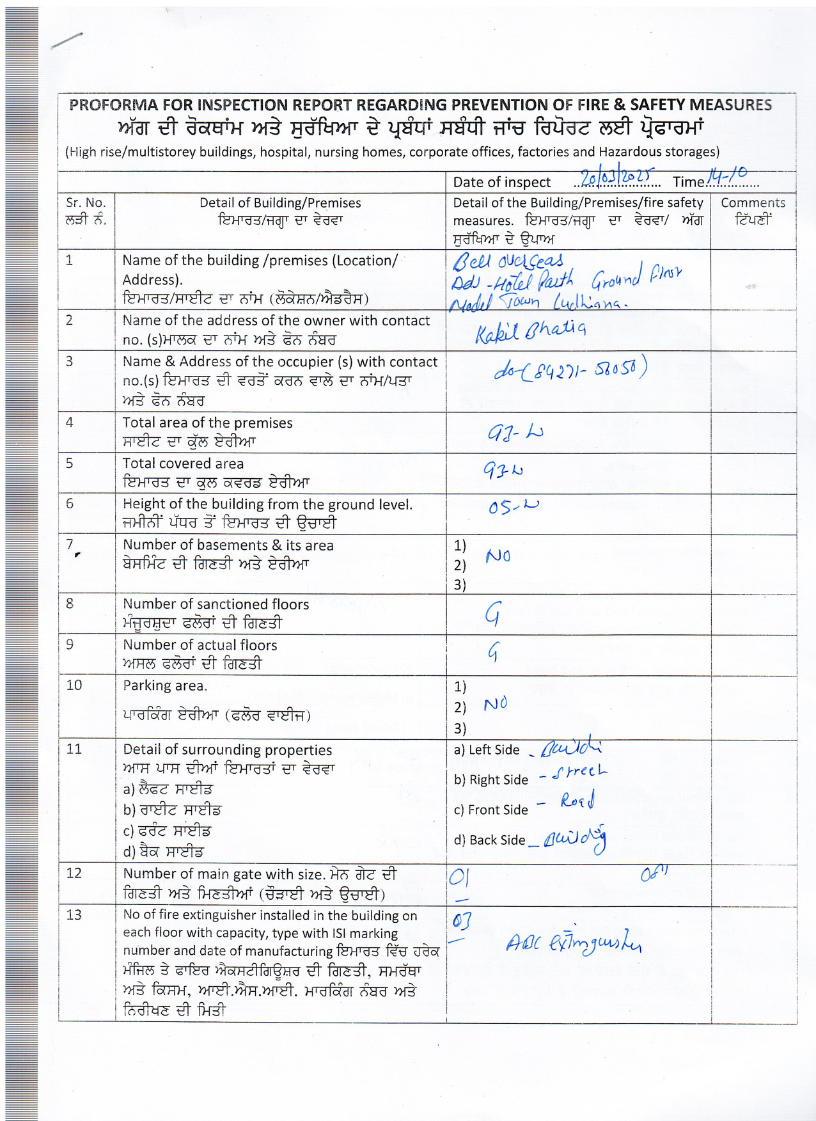 PROFORMA FOR INSPECTION REPORT REGARDING PREVENTION OF FIRE & SAFETY MEASURES
ਅੱਗ ਦੀ ਰੋਕਥਾਂਮ ਅਤੇ ਸੁਰੱਖਿਆ ਦੇ ਪ੍ਰਬੰਧਾਂ ਸਬੰਧੀ ਜਾਂਚ ਰਿਪੋਰਟ ਲਈ ਪ੍ਰੋਫਾਰਮਾਂ
(High rise/multistorey buildings, hospital, nursing homes, corporate offices, factories and Hazardous storages)
Date of inspect 20/03/2025 Time 14-10
Sr. No. Detail of Building/Premises Detail of the Building/Premises/fire safety Comments
ਲੜੀ ਨੰ. ਇਮਾਰਤ/ਜਗ੍ਹਾ ਦਾ ਵੇਰਵਾ measures. ਇਮਾਰਤ/ਜਗ੍ਹਾ ਦਾ ਵੇਰਵਾ/ ਅੱਗ ਟਿੱਪਣੀਂ
ਸੁਰੱਖਿਆ ਦੇ ਉਪਾਅ
1 Name of the building /premises (Location/ Bell overseas
Address). Hotel Ground floor
ਇਮਾਰਤ/ਸਾਈਟ ਦਾ ਨਾਂਮ (ਲੋਕੇਸ਼ਨ/ਐਡਰੈਸ) Model Town Ludhiana.
2 Name of the address of the owner with contact
no. (s)ਮਾਲਕ ਦਾ ਨਾਂਮ ਅਤੇ ਫੋਨ ਨੰਬਰ Bhatia
3 Name & Address of the occupier (s) with contact do-(84271-50050)
no.(s) ਇਮਾਰਤ ਦੀ ਵਰਤੋਂ ਕਰਨ ਵਾਲੇ ਦਾ ਨਾਂਮ/ਪਤਾ
ਅਤੇ ਫੋਨ ਨੰਬਰ
4 Total area of the premises
ਸਾਈਟ ਦਾ ਕੁੱਲ ਏਰੀਆ
5 Total covered area
ਇਮਾਰਤ ਦਾ ਕੁਲ ਕਵਰਡ ਏਰੀਆ
6 Height of the building from the ground level.
ਜਮੀਨੀਂ ਪੱਧਰ ਤੋਂ ਇਮਾਰਤ ਦੀ ਉਚਾਈ
7 Number of basements & its area 1)
ਬੇਸਮਿੰਟ ਦੀ ਗਿਣਤੀ ਅਤੇ ਏਰੀਆ 2) NO
3)
8 Number of sanctioned floors G
ਮੰਜੂਰਸ਼ੁਦਾ ਫਲੋਰਾਂ ਦੀ ਗਿਣਤੀ
9 Number of actual floors G
ਅਸਲ ਫਲੋਰਾਂ ਦੀ ਗਿਣਤੀ
10 Parking area. 1)
ਪਾਰਕਿੰਗ ਏਰੀਆ (ਫਲੋਰ ਵਾਈਜ) 2) NO
3)
11 Detail of surrounding properties a) Left Side -
ਆਸ ਪਾਸ ਦੀਆਂ ਇਮਾਰਤਾਂ ਦਾ ਵੇਰਵਾ
a) ਲੈਫਟ ਸਾਈਡ b) Right Side - Street
b) ਰਾਈਟ ਸਾਈਡ
c) ਫਰੰਟ ਸਾਂਈਡ c) Front Side - Road
d) ਬੈਕ ਸਾਈਡ d) Back Side - Building
12 Number of main gate with size. ਮੇਨ ਗੇਟ ਦੀ 01
ਗਿਣਤੀ ਅਤੇ ਮਿਣਤੀਆਂ (ਚੌੜਾਈ ਅਤੇ ਉਚਾਈ)
13 No of fire extinguisher installed in the building on 03
each floor with capacity, type with ISI marking ABC extinguisher
number and date of manufacturing ਇਮਾਰਤ ਵਿੱਚ ਹਰੇਕ
ਮੰਜਿਲ ਤੇ ਫਾਇਰ ਐਕਸਟੀਗਿਊਸ਼ਰ ਦੀ ਗਿਣਤੀ, ਸਮਰੱਥਾ
ਅਤੇ ਕਿਸਮ, ਆਈ.ਐਸ.ਆਈ. ਮਾਰਕਿੰਗ ਨੰਬਰ ਅਤੇ
ਨਿਰੀਖਣ ਦੀ ਮਿਤੀ